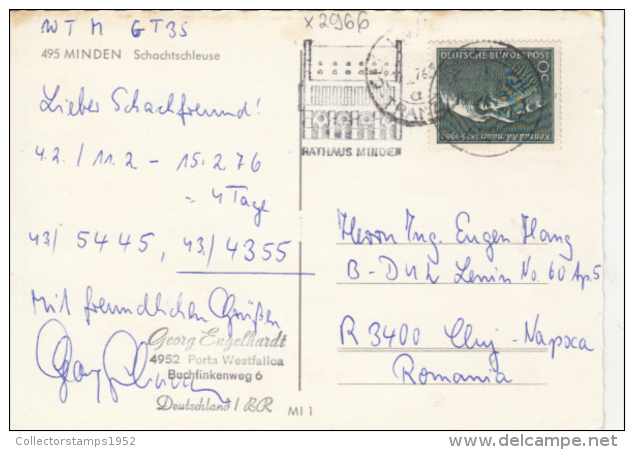 x 2966
WT M GT35
495 MINDEN Schachtschleuse
Lieber Schachfreund!
4.2. / 11.2 - 15.2.76
= 4 Tage
43/ 5445, 43/ 4355
Mit freundlichen Grüßen
Georg Engelhardt
4952 Porta Westfalica
Buchfinkenweg 6
Deutschland / BR
MI 1
RATHAUS MINDEN
DEUTSCHE BUNDESPOST
50
Konrad Adenauer 1876-1967
Herrn Ing. Eugen Hang
B-Dul Lenin No. 60 Ap. 5
R 3400 Cluj-Napoca
Romania
Collectorstamps1952
delcampe.net